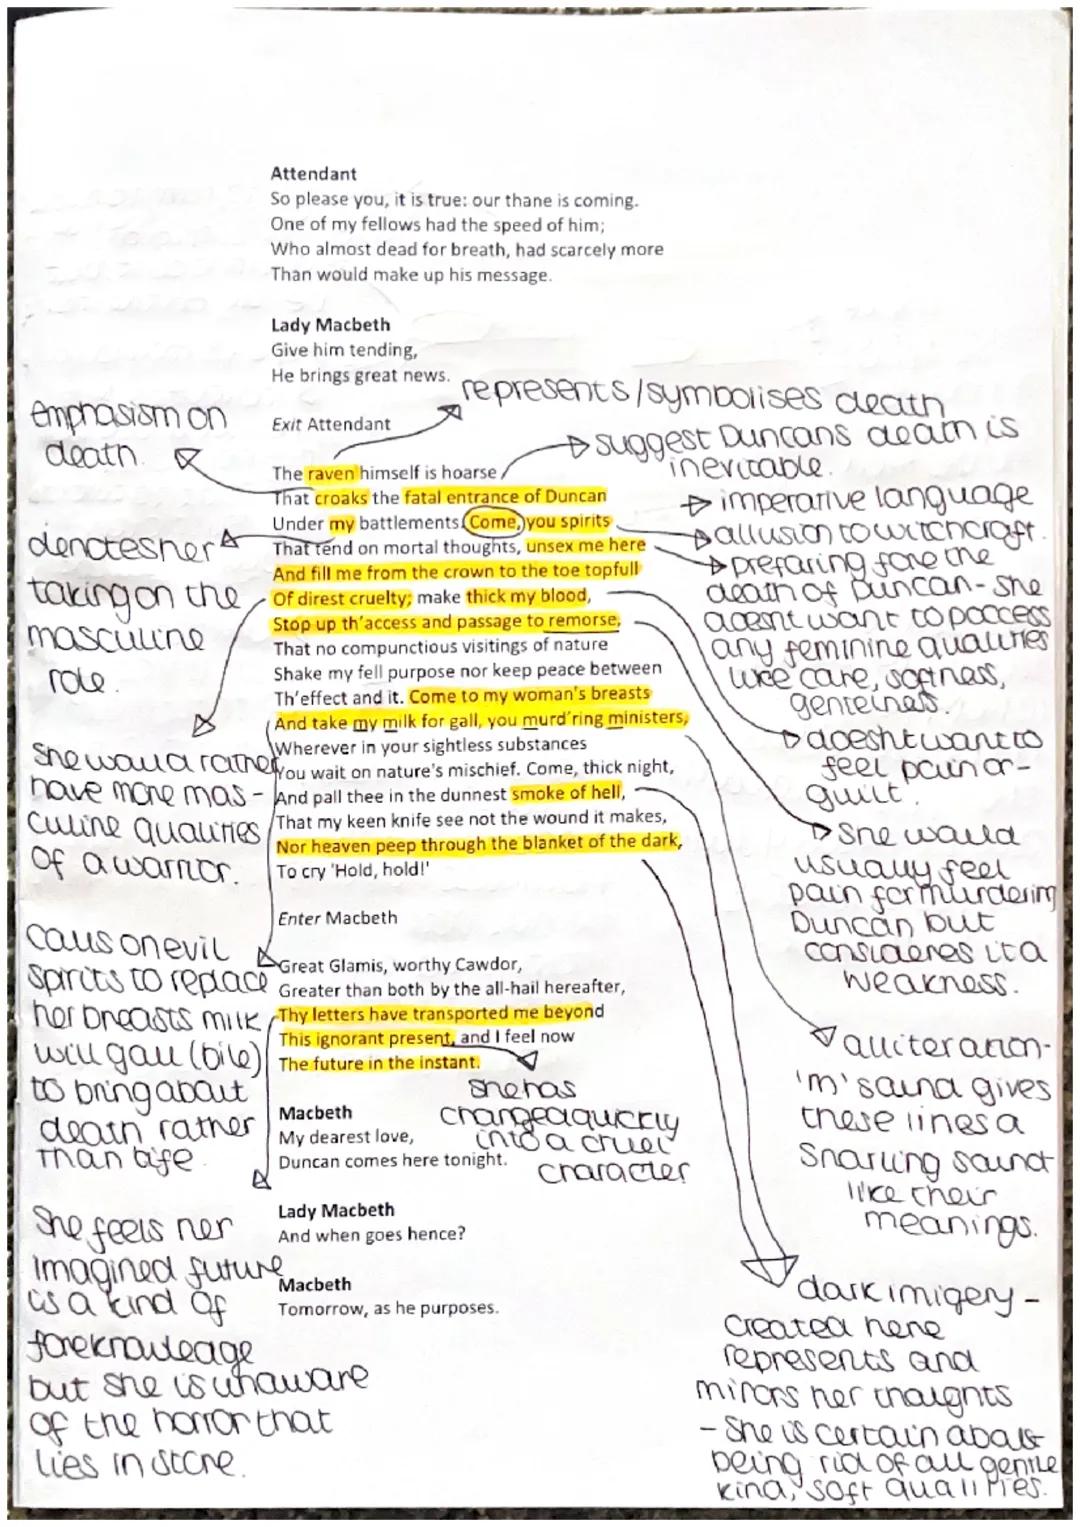 Attendant
So please you, it is true: our thane is coming.
One of my fellows had the speed of him;
Who almost dead for breath, had scarcely more
Than would make up his message.
Lady Macbeth
Give him tending,
He brings great news.
Exit Attendant
The raven himself is hoarse
That croaks the fatal entrance of Duncan
Under my battlements. Come, you spirits
That tend on mortal thoughts, unsex me here
And fill me from the crown to the toe topfull
Of direst cruelty; make thick my blood,
Stop up th'access and passage to remorse,
That no compunctious visitings of nature
Shake my fell purpose nor keep peace between
Th'effect and it. Come to my woman's breasts
And take my milk for gall, you murd'ring ministers,
Wherever in your sightless substances
You wait on nature's mischief. Come, thick night,
And pall thee in the dunnest smoke of hell,
That my keen knife see not the wound it makes,
Nor heaven peep through the blanket of the dark,
To cry 'Hold, hold!'
Enter Macbeth
Great Glamis, worthy Cawdor,
Greater than both by the all-hail hereafter,
Thy letters have transported me beyond
This ignorant present, and I feel now
The future in the instant.
Macbeth
My dearest love,
Duncan comes here tonight.
Lady Macbeth
And when goes hence?
Macbeth
Tomorrow, as he purposes.
emphasism on
death.
denotes her
taking on the
masculine
role.
she would rather
have more mas-
culine qualities
of a warrior.
calls on evil
spirits to replace
her breasts milk
will gall (bile)
to bring about
death rather
than life
She feels her
imagined future
is a kind of
foreknowleage
but she is unaware
of the horror that
lies in store.
represents/symbolises death
suggest Duncans death is
inevitable.
imperative language
allusion to witchcraft.
preparing fore the
death of Duncan - she
doesnt want to poccess
any feminine qualities
like care, softness,
genteiness.
doesnt want to
feel pain or -
guilt.
She would
usually feel
pain for murdering
Duncan but
consideres it a
weakness.
alliteration -
'm' sound gives
these lines a
snarling sound
like their
meanings.
she has
changed quickly
into a cruel
character
dark imigery -
created here
represents and
mirrors her thoughts
- She is certain about
being rid of all gentle
kind, soft qualities.